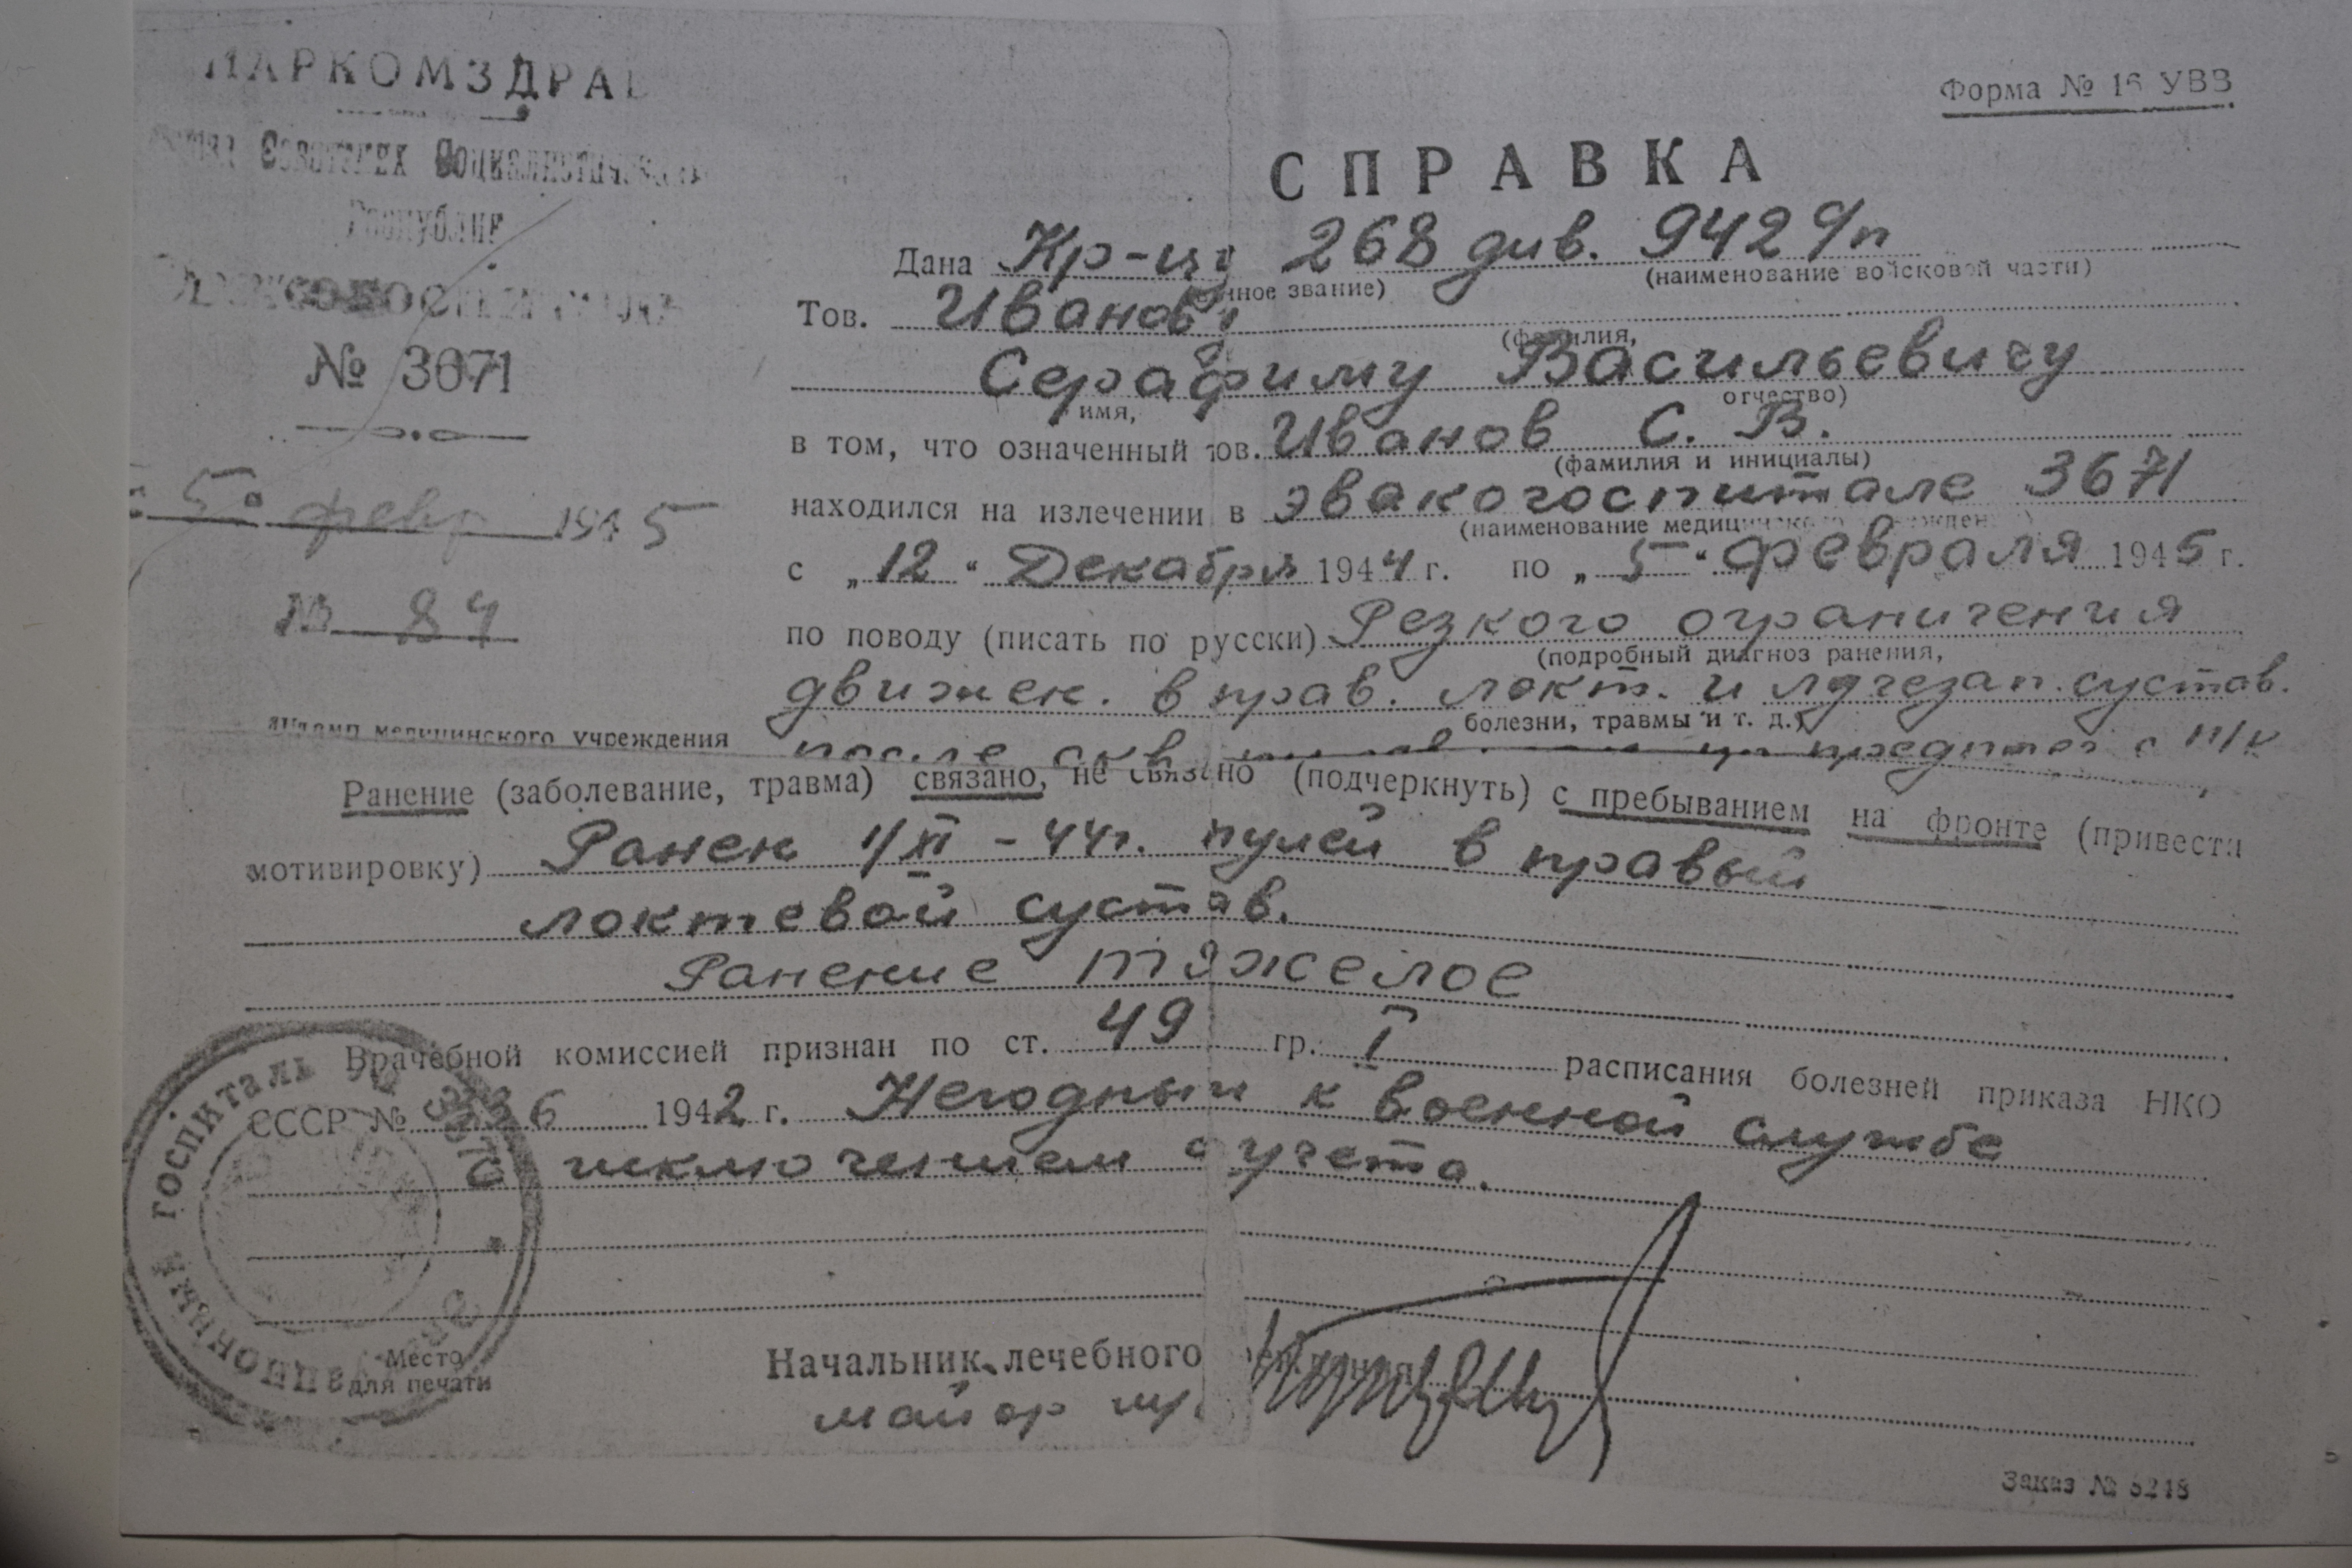 НАРКОМЗДРАВ
Советских Социалистических
Республик
№ 3671
"5" февр 1945
№ 84
Штамп медицинского учреждения
Форма № 16 УВВ
СПРАВКА
Дана Кр-цу 268 див. 942 с/п
(военное звание) (наименование войсковой части)
Тов. Иванову
(фамилия,
Серафиму Васильевичу
имя, отчество)
в том, что означенный тов. Иванов С. В.
(фамилия и инициалы)
находился на излечении в эвакогоспитале 3671
(наименование медицинского учреждения)
с „12“ Декабря 1944 г. по „5“ февраля 1945 г.
по поводу (писать по русски) Резкого ограничения
(подробный диагноз ранения,
движен. в прав. локт. и лучезап. сустав.
болезни, травмы и т. д.)
после
Ранение (заболевание, травма) связано, не связано (подчеркнуть) с пребыванием на фронте (привести
мотивировку) Ранен 1/XI - 44г. пулей в правый
локтевой сустав.
Ранение тяжелое
Врачебной комиссией признан по ст. 49 гр. I расписания болезней приказа НКО
СССР № 336 1942 г. Негодным к военной службе
с исключением с учета.
госпиталь №
Место
для печати
Начальник лечебного
майор
Заказ №